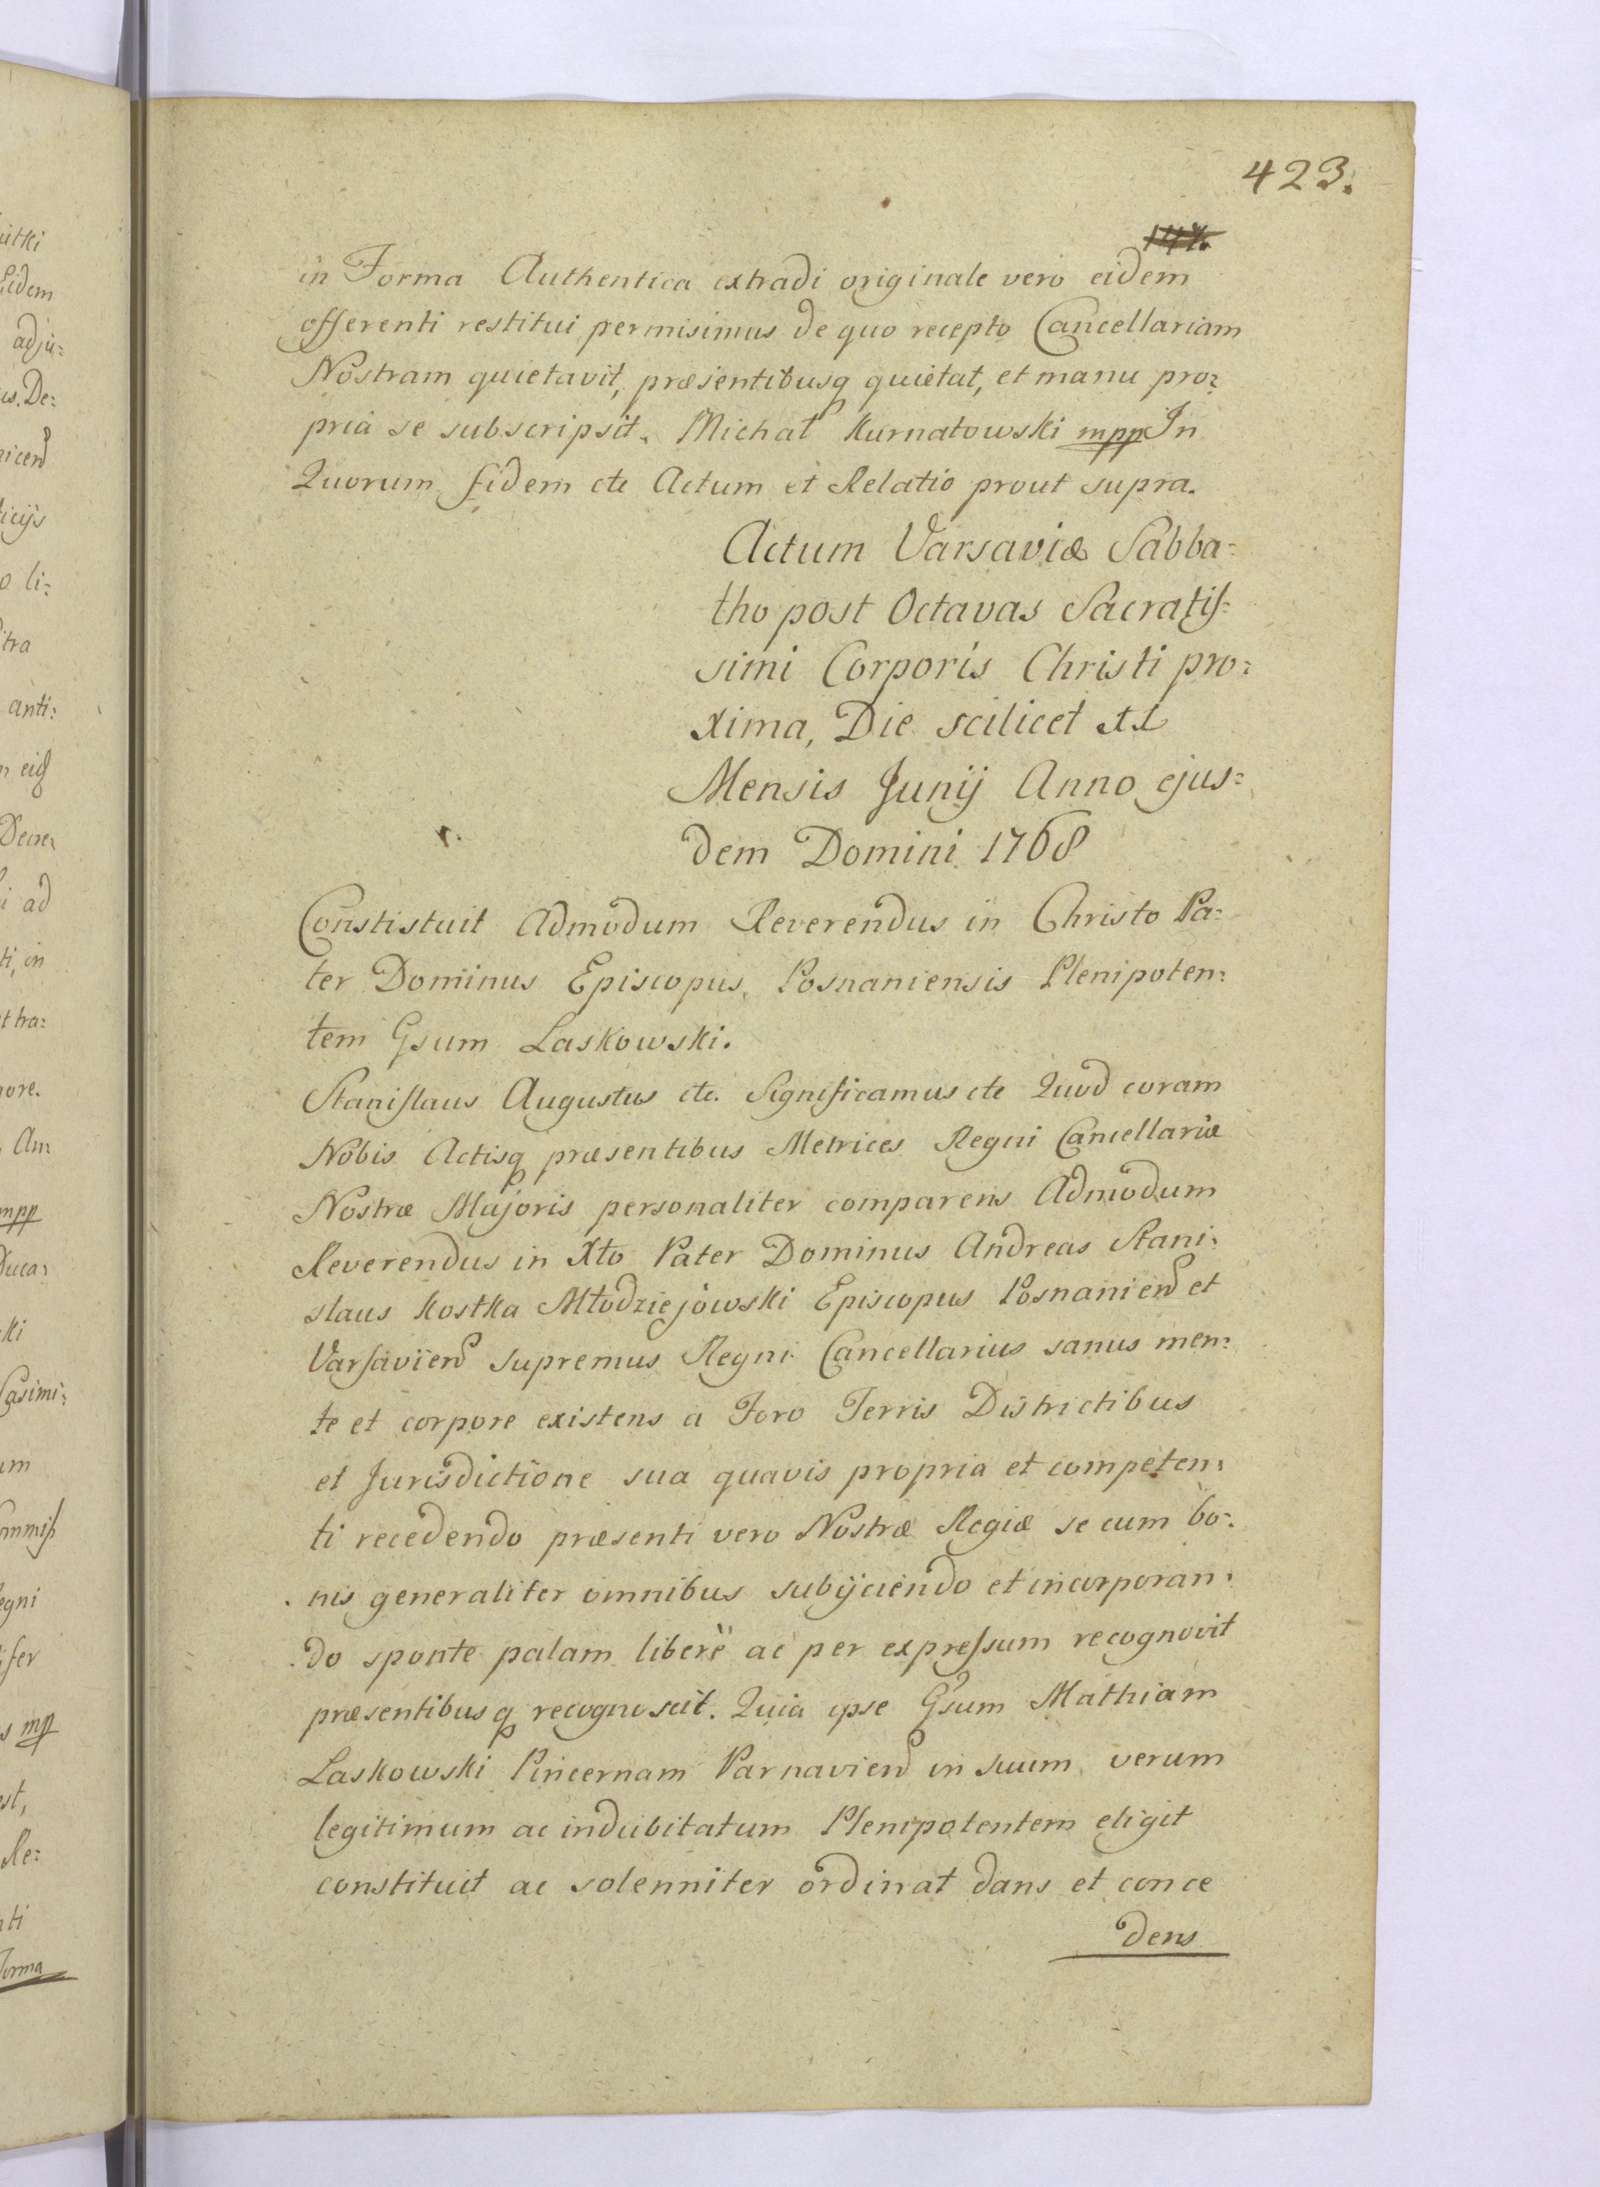 423.
147.
in Forma Authentica extradi originale vero eidem
offerenti restitui permisimus de quo recepto Cancellariam
Nostram quietavit, præsentibusq quietat, et manu pro:
pria se subscripsit. Michał Kurnatowski mpp In
Quorum fidem etc Actum et Relatio prout supra.
Actum Varsaviæ Sabba=
tho post Octavas Sacratiſ=
simi Corporis Christi pro:
xima, Die scilicet XI
Mensis Junij Anno ejus=
dem Domini 1768
Constistuit Admodum Reverendus in Christo Pa:
ter Dominus Episcopus Posnaniensis Plenipoten:
tem Gsum Laskowski.
Staniſlaus Augustus etc. Significamus etc Quod coram
Nobis Actisq præsentibus Metrices Regni Cancellariæ
Nostræ Majoris personaliter comparens Admodum
Reverendus in Xto Pater Dominus Andreas Stani:
slaus Kostka Młodziejowski Episcopus Posnanien et
Varſavien Supremus Regni Cancellarius sanus men:
te et corpore existens a Foro Terris Districtibus
et Jurisdictione sua quavis propria et competen:
ti recedendo præsenti vero Nostræ Regiæ se cum bo:
nis generaliter omnibus subijciendo et incorporan:
do sponte palam liberè ac per expreſsum recognovit
præsentibusq recognoscit. Quia ipse Gsum Mathiam
Laskowski Pincernam Parnavien in suum verum
legitimum ac indubitatum Plenipotentem eligit
constituit ac solenniter ordinat dans et conce
dens